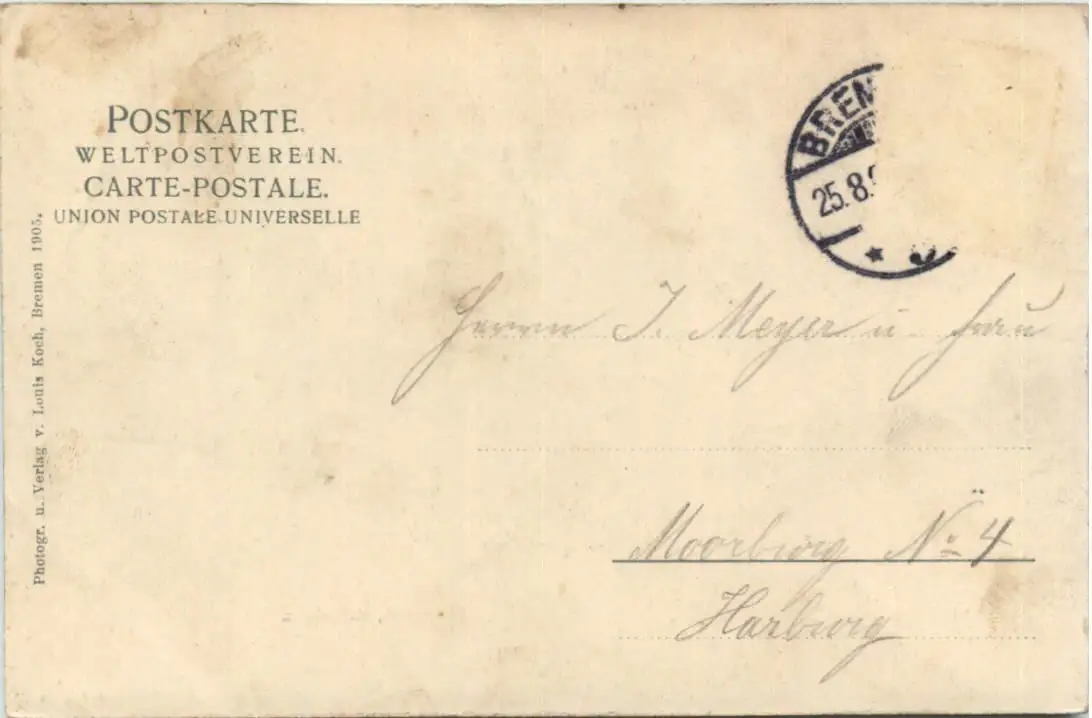 POSTKARTE.
WELTPOSTVEREIN.
CARTE-POSTALE.
UNION POSTALE UNIVERSELLE
Photogr. u. Verlag v. Louis Koch, Bremen 1905.
BREM
25.8.
Herrn J. Meyer u Frau
Moorburg No 4
Harburg